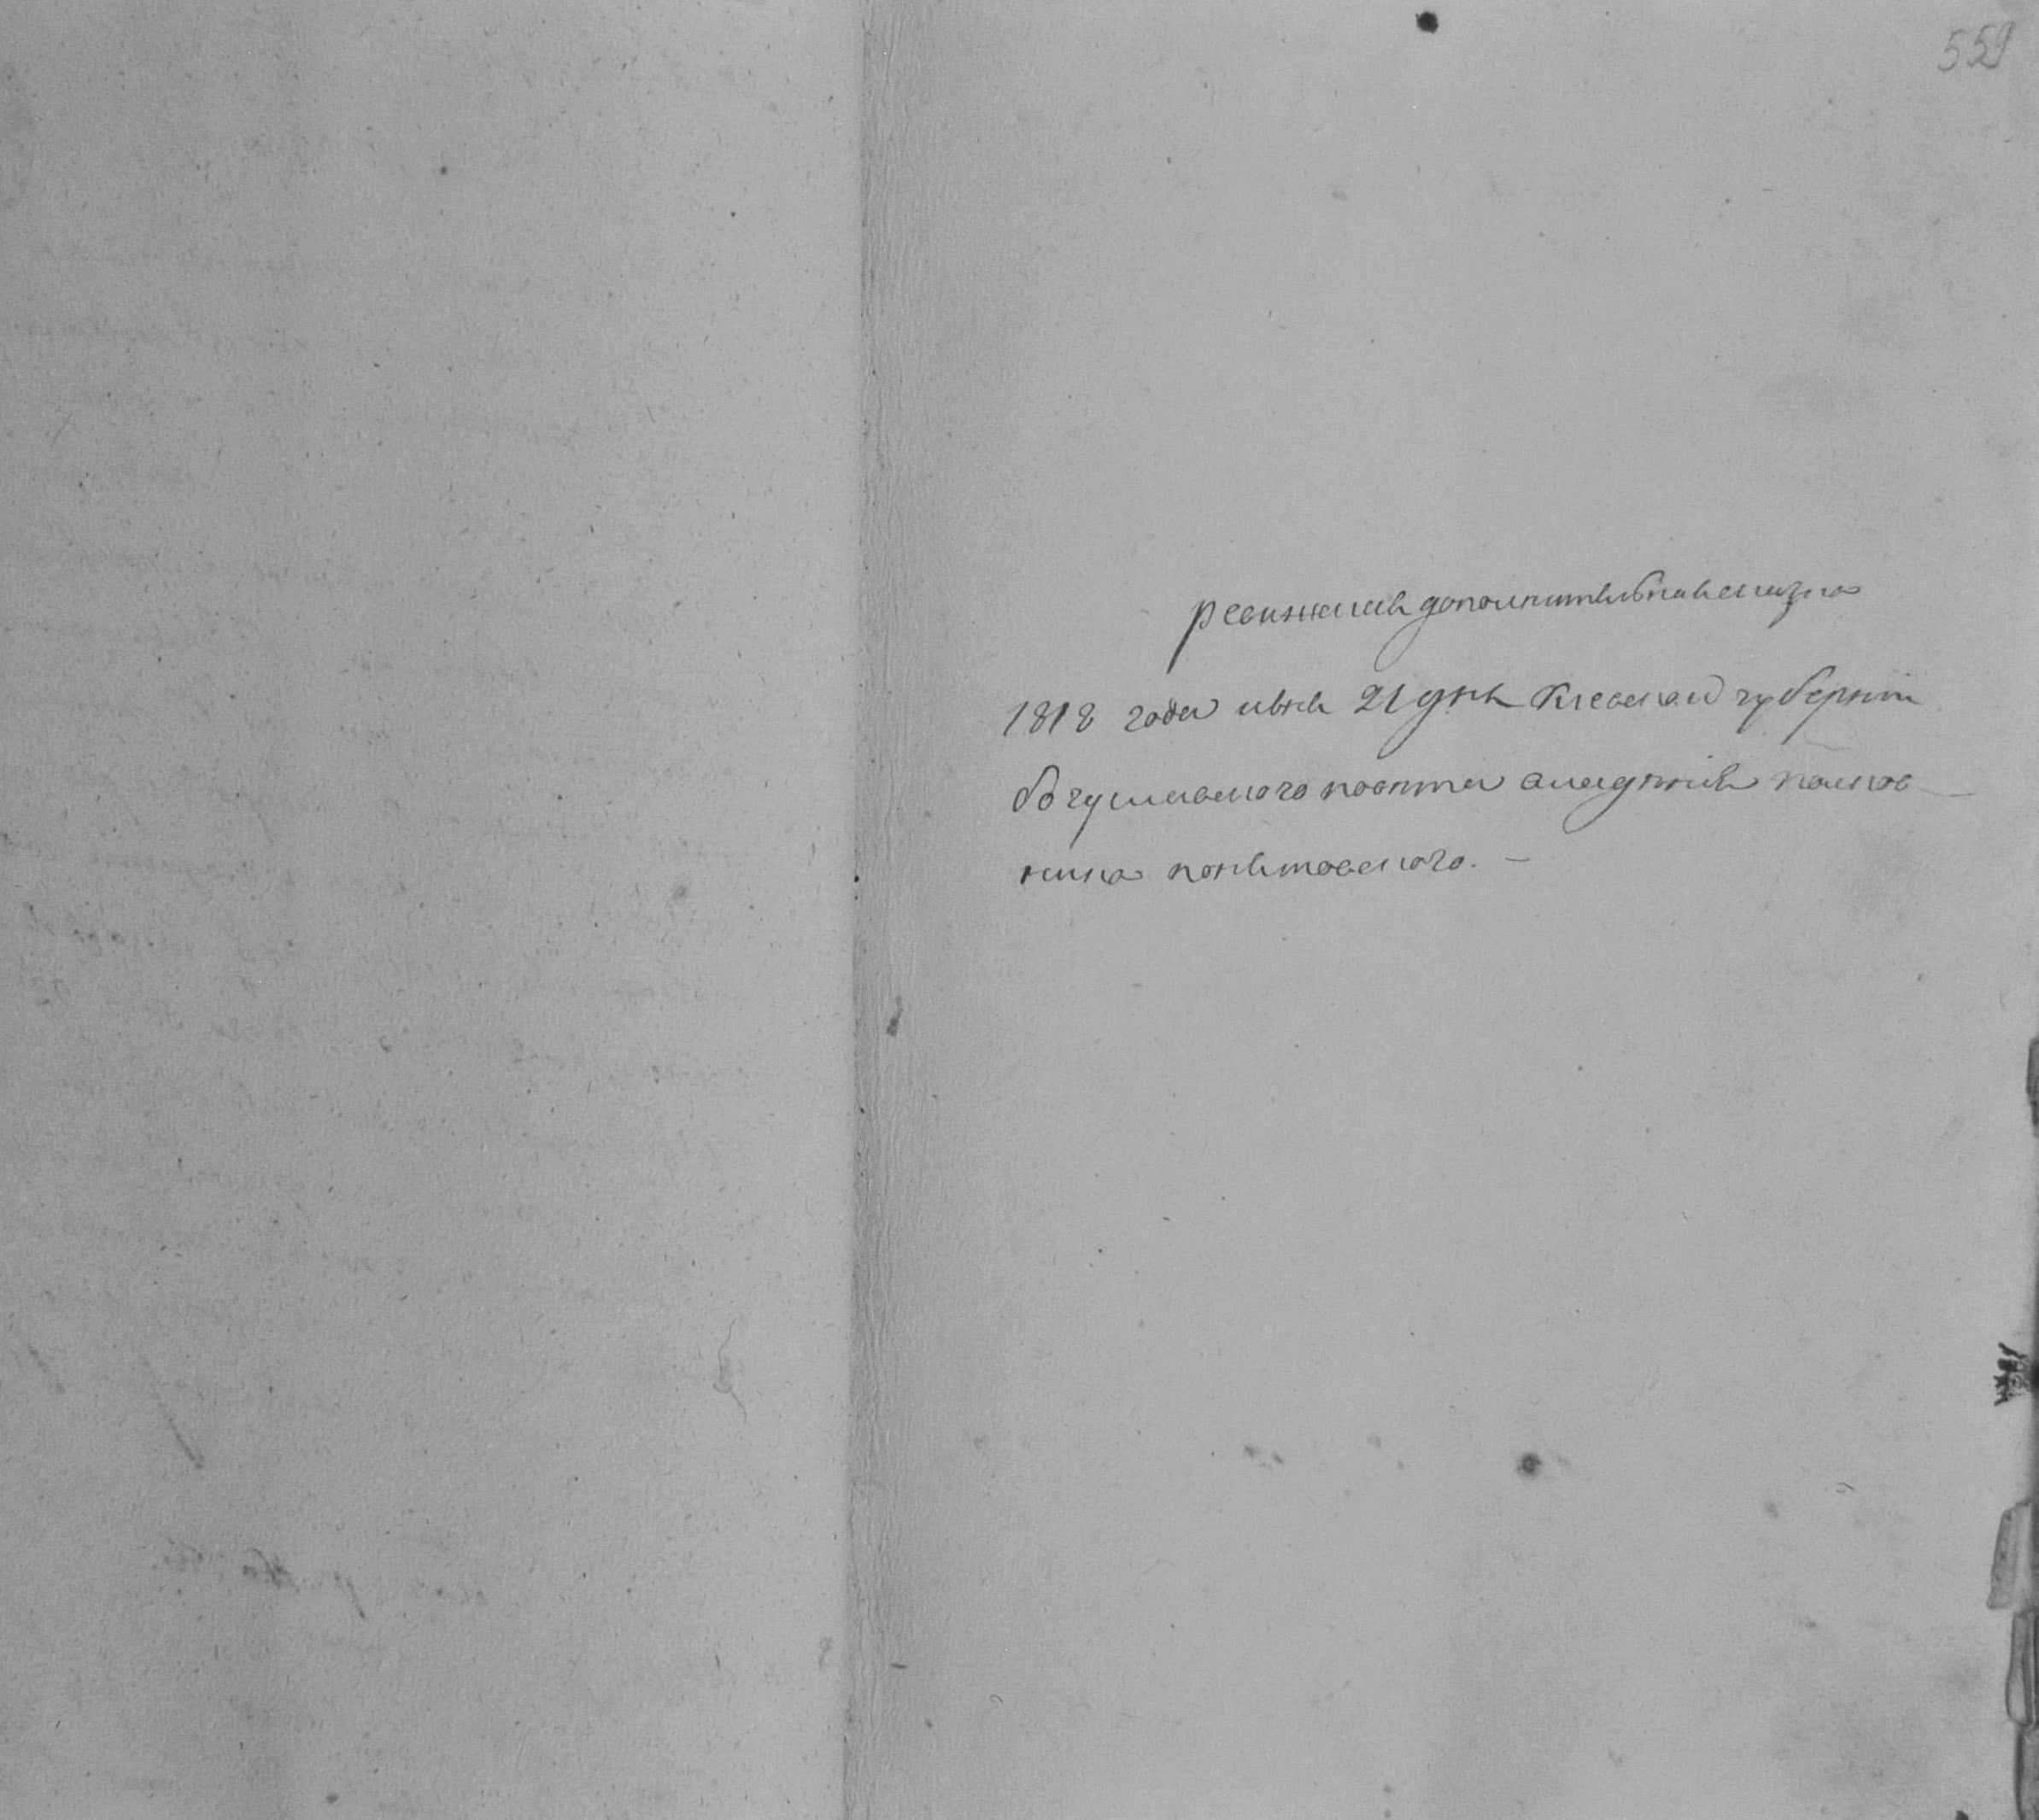 559
ревижская дополнительная сказка
1818 года июня 21 дня Киевской губернии
богуславского повета владения полков
ника понятовского. —